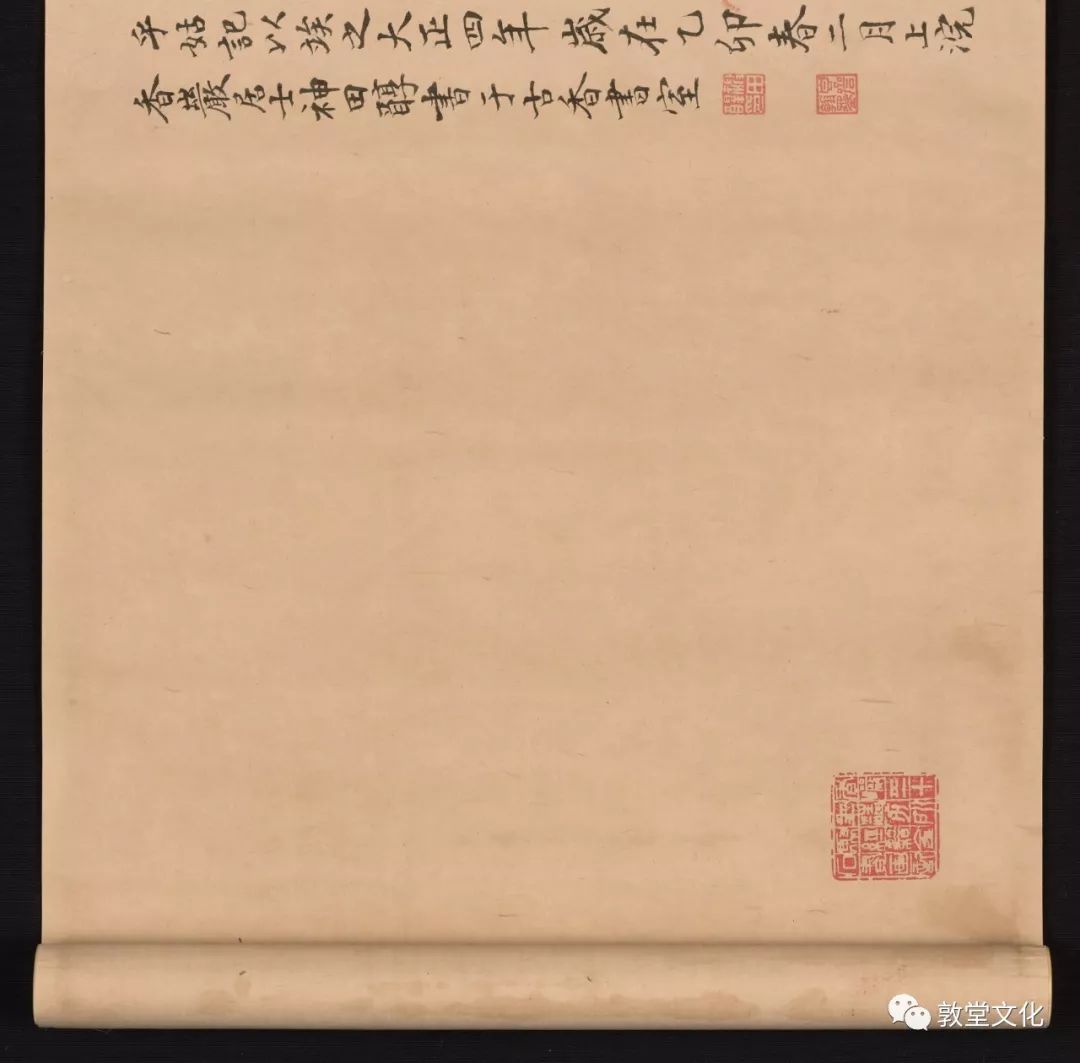 乎姑記以竢之大正四年歳在乙卯春二月上浣
香巖居士神田醇書于古香書室
敦堂文化